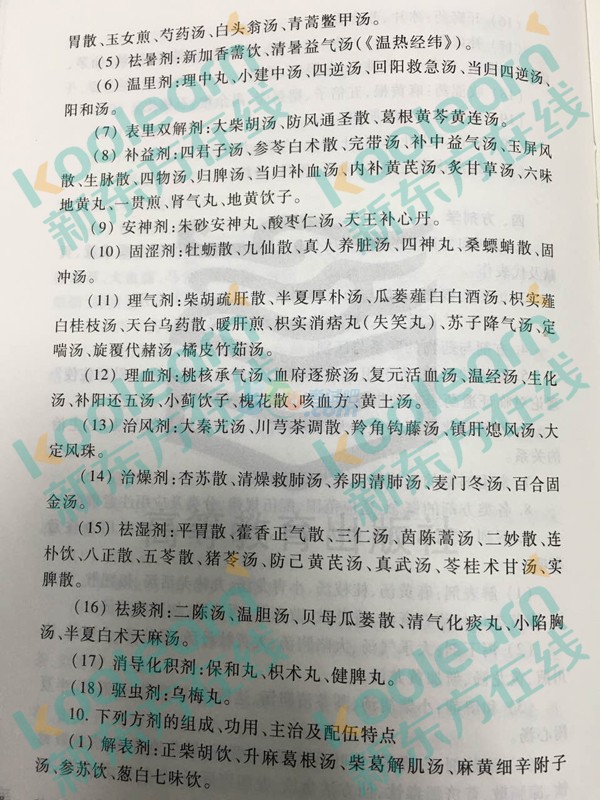 胃散、玉女煎、芍药汤、白头翁汤、青蒿鳖甲汤。
(5) 祛暑剂:新加香薷饮、清暑益气汤(《温热经纬》)。
(6) 温里剂:理中丸、小建中汤、四逆汤、回阳救急汤、当归四逆汤、
阳和汤。
(7) 表里双解剂:大柴胡汤、防风通圣散、葛根黄芩黄连汤。
(8) 补益剂:四君子汤、参苓白术散、完带汤、补中益气汤、玉屏风
散、生脉散、四物汤、归脾汤、当归补血汤、内补黄芪汤、炙甘草汤、六味
地黄丸、一贯煎、肾气丸、地黄饮子。
(9) 安神剂:朱砂安神丸、酸枣仁汤、天王补心丹。
(10) 固涩剂:牡蛎散、九仙散、真人养脏汤、四神丸、桑螵蛸散、固
冲汤。
(11) 理气剂:柴胡疏肝散、半夏厚朴汤、瓜蒌薤白白酒汤、枳实薤
白桂枝汤、天台乌药散、暖肝煎、枳实消痞丸(失笑丸)、苏子降气汤、定
喘汤、旋覆代赭汤、橘皮竹茹汤。
(12) 理血剂:桃核承气汤、血府逐瘀汤、复元活血汤、温经汤、生化
汤、补阳还五汤、小蓟饮子、槐花散、咳血方、黄土汤。
(13) 治风剂:大秦艽汤、川芎茶调散、羚角钩藤汤、镇肝熄风汤、大
定风珠。
(14) 治燥剂:杏苏散、清燥救肺汤、养阴清肺汤、麦门冬汤、百合固
金汤。
(15) 祛湿剂:平胃散、藿香正气散、三仁汤、茵陈蒿汤、二妙散、连
朴饮、八正散、五苓散、猪苓汤、防己黄芪汤、真武汤、苓桂术甘汤、实
脾散。
(16) 祛痰剂:二陈汤、温胆汤、贝母瓜蒌散、清气化痰丸、小陷胸
汤、半夏白术天麻汤。
(17) 消导化积剂:保和丸、枳术丸、健脾丸。
(18) 驱虫剂:乌梅丸。
10. 下列方剂的组成、功用、主治及配伍特点
(1) 解表剂:正柴胡饮、升麻葛根汤、柴葛解肌汤、麻黄细辛附子
汤、参苏饮、葱白七味饮。
Koolearn
新东方在线
Koolearn
新东方在线
Koolearn
新东方在线
Koolearn
新东方在线
Koolearn
新东方在线
Koolearn
新东方在线